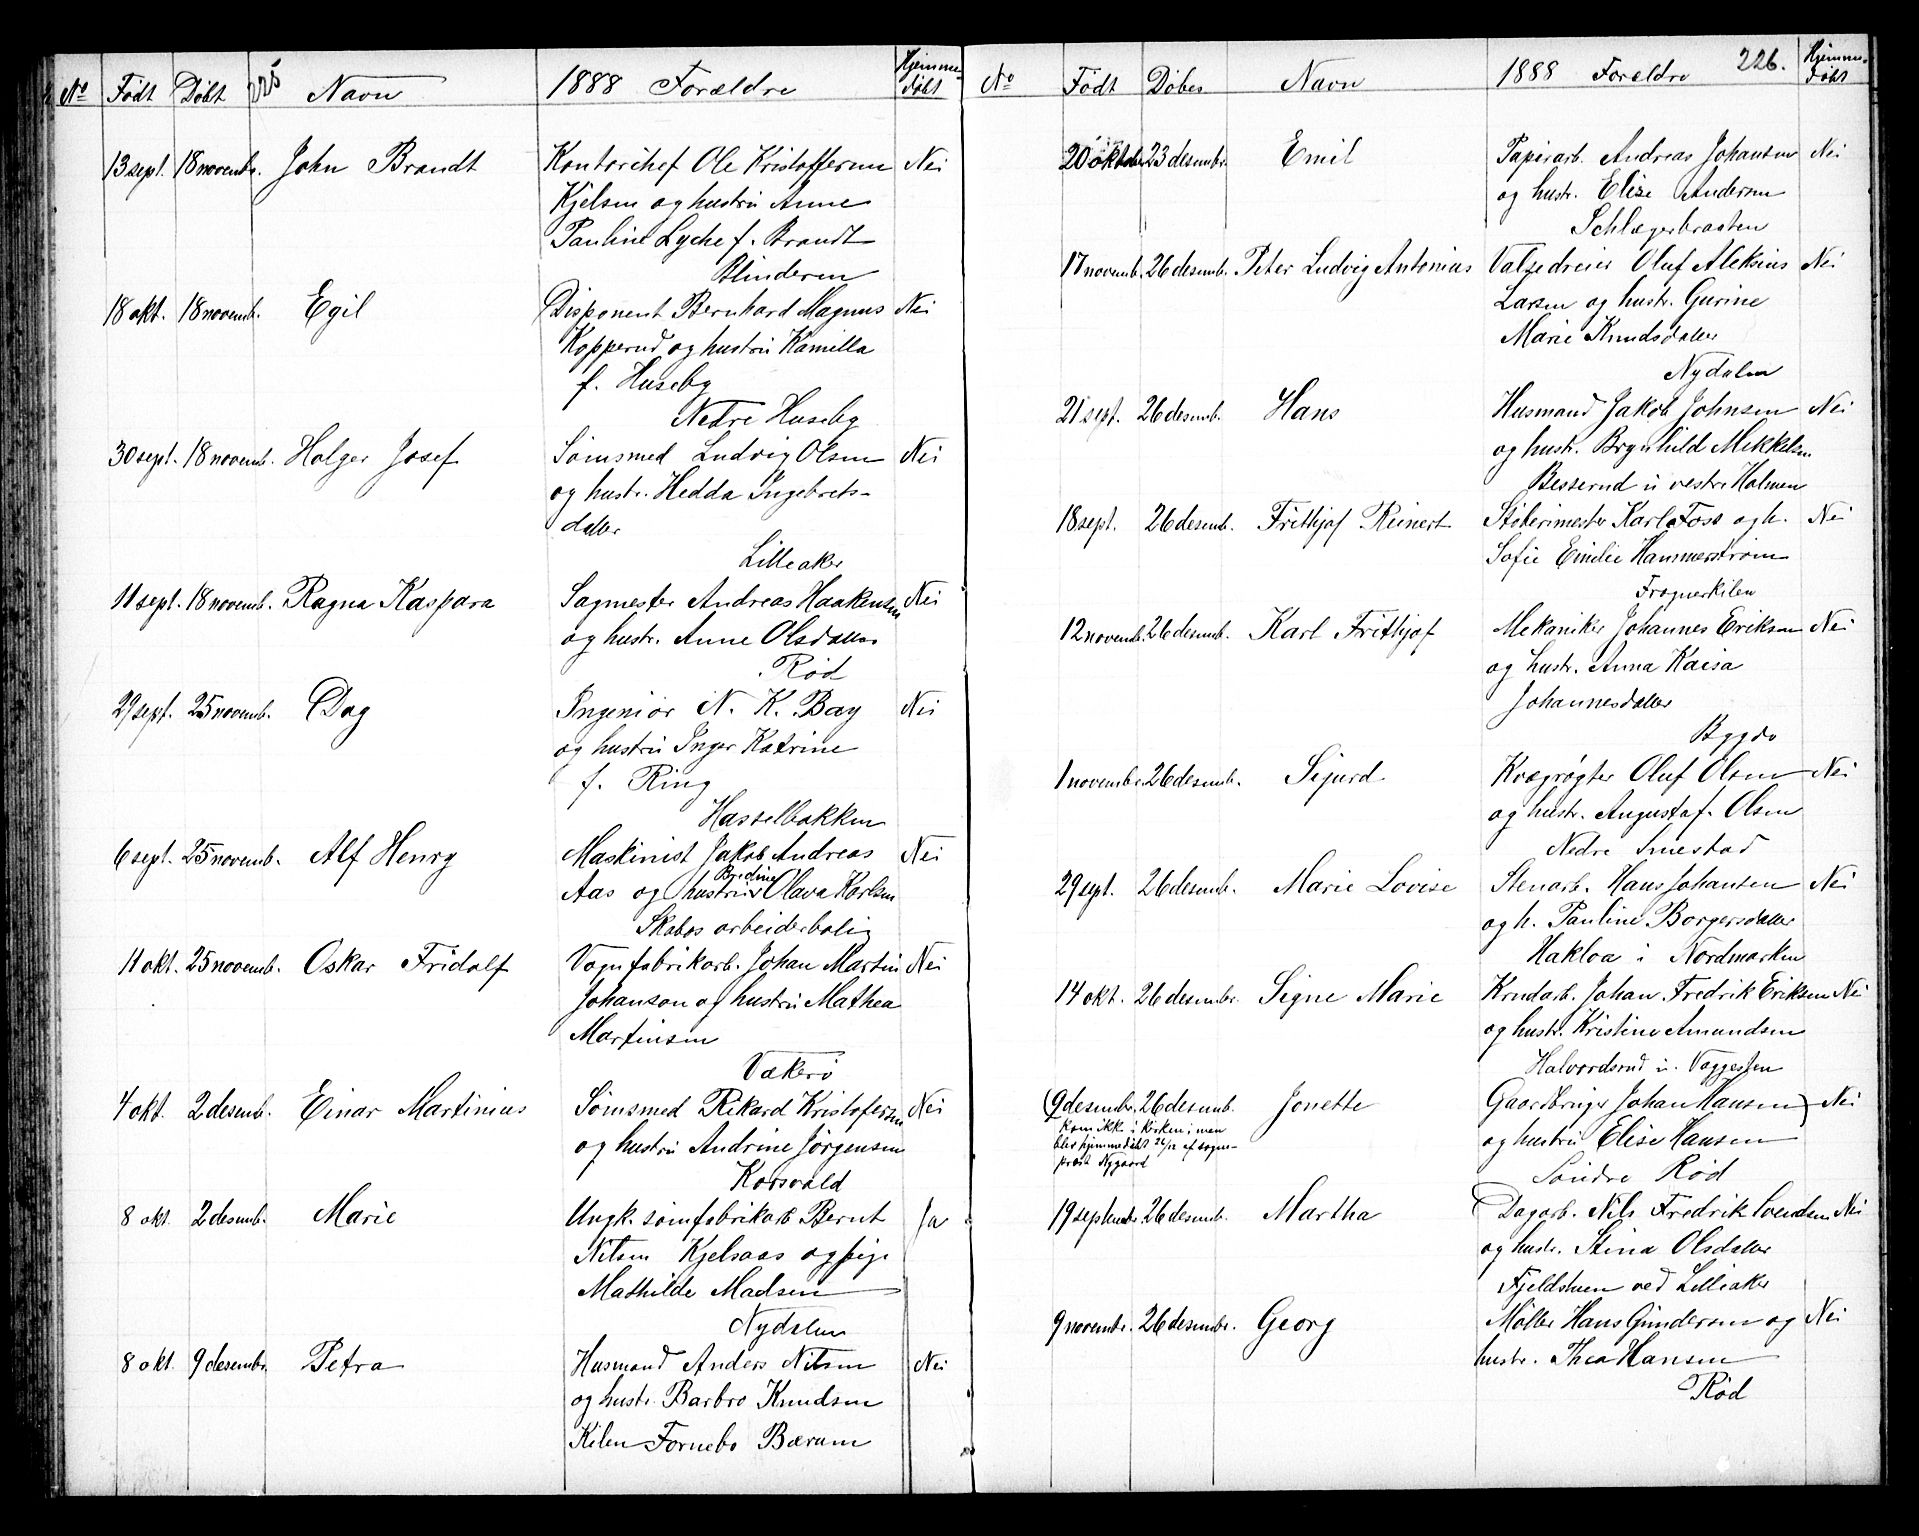 No Født Døbt Navn 1888 Forældre Hjemme-døbt
13 sept. 18 novemb. John Brandt Kontorchef Ole Kristoffersen Nei
Kjelsen og hustru Anne
Pauline Lyche f. Brandt
Blindern
18 okt. 18 novemb. Egil Disponent Bernhard Magnus Nei
Kopperud og hustru Kamilla
f. Huseby
Nedre Huseby
30 sept. 18 novemb. Holger Josef Sømsmed Ludvig Olsen Nei
og hustr. Hedda Ingebrets-
datter
Lilleaker
11 sept. 18 novemb. Ragna Kaspara Sagmester Andreas Haakensen Nei
og hustr. Anne Olsdatter
Rød
29 sept. 25 novemb. Dag Ingeniør N. K. Bay Nei
og hustru Inger Katrine
f. Ring
Hasselbakken
6 sept. 25 novemb. Alf Henry Maskinist Jakob Andreas Nei
Aas og hustru Bredine Olava Karlsen
Skabos arbeiderbolig
11 okt. 25 novemb. Oskar Fridolf Vognfabrikarb. Johan Martin Nei
Johanson og hustru Mathea
Martinsen
Vækerø
4 okt. 2 desemb. Einar Martinius Sømsmed Rikard Kristofersen Nei
og hustru Andrine Jørgensen
Korsvold
8 okt. 2 desemb. Marie Ungk. sømfabrikarb. Bernt Ja
Nilsen Kjelsaas og pige
Mathilde Madsen
Nydalen
8 okt. 9 desembr. Petra Husmand Anders Nilsen Nei
og hustr. Barbro Knudsen
Kilen Fornebo Bærum
No Født Døbes Navn 1888 Forældre 226. Hjemme-døbt
20 oktober 23 desembr. Emil Papirarb. Andreas Johansen Nei
og hustr. Elise Andersen
Schlægerbraaten
17 novemb. 26 desemb. Peter Ludvig Antonius Valsedreier Oluf Aleksius Nei
Larsen og hustr. Gurine
Marie Knudsdatter
Nydalen
21 sept. 26 desemb. Hans Husmand Jakob Johnsen Nei
og hustr. Brynhild Mikkelsen
Besserud u vestre Holmen
18 sept. 26 desemb. Frithjof Reinert Støberimester Karl Foss og h. Nei
Sofie Emilie Hammerstrøm
Frognerkilen
12 novemb. 26 desemb. Karl Frithjof Mekaniker Johannes Erikson Nei
og hustr. Anna Kaisa
Johannesdatter
Bygdø
1 novembr. 26 desemb. Sigurd Kvægrøgter Oluf Olsen Nei
og hustr. Augusta f. Olsen
Nedre Smestad
29 sept. 26 desemb. Marie Lovise Stenarb. Hans Johansen Nei
og h. Pauline Borgersdatter
Hakloa i Nordmarken
14 okt. 26 desembr. Signe Marie Krudarb. Johan Fredrik Eriksen Nei
og hustr. Kristine Amundsen
Halvordsrud u. Voggesten
(9 desembr. 26 desemb. Jonette Gaardbruger Johan Hansen) Nei
kom ikke i kirken; men
blev hjemmedøbt 26/12 af sogne-
præst Nygaard
og hustru Elise Hansen
Søndre Rød
19 septembr. 26 desemb. Martha Dagarb. Nils Fredrik Svendsen Nei
og hustr. Stina Olsdatter
Fjeldstuen ved Lilleaker
9 novembr. 26 desembr. Georg Møller Hans Gundersen og Nei
hustr. Thea Hansen
Rød